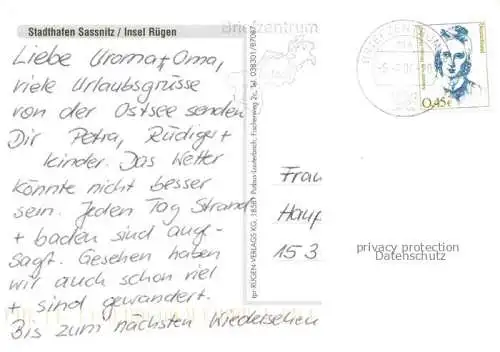 Stadthafen Sassnitz / Insel Rügen
Liebe Uroma + Oma,
viele Urlaubsgrüsse
von der Ostsee senden
Dir Petra, Rüdiger +
Kinder. Das Wetter
könnte nicht besser
sein. Jeden Tag Strand
+ baden sind ange-
sagt. Gesehen haben
wir auch schon viel
+ sind gewandert.
Bis zum nächsten Wiedersehen
Briefzentrum
rpr RÜGEN-VERLAGS KG, 18581 Putbus-Lauterbach, Fischerweg 2c, Tel. 038301/87067
BRIEFZENTRUM
Deutschland
0,45€
Frau
Haup
15 3
privacy protection
Datenschutz